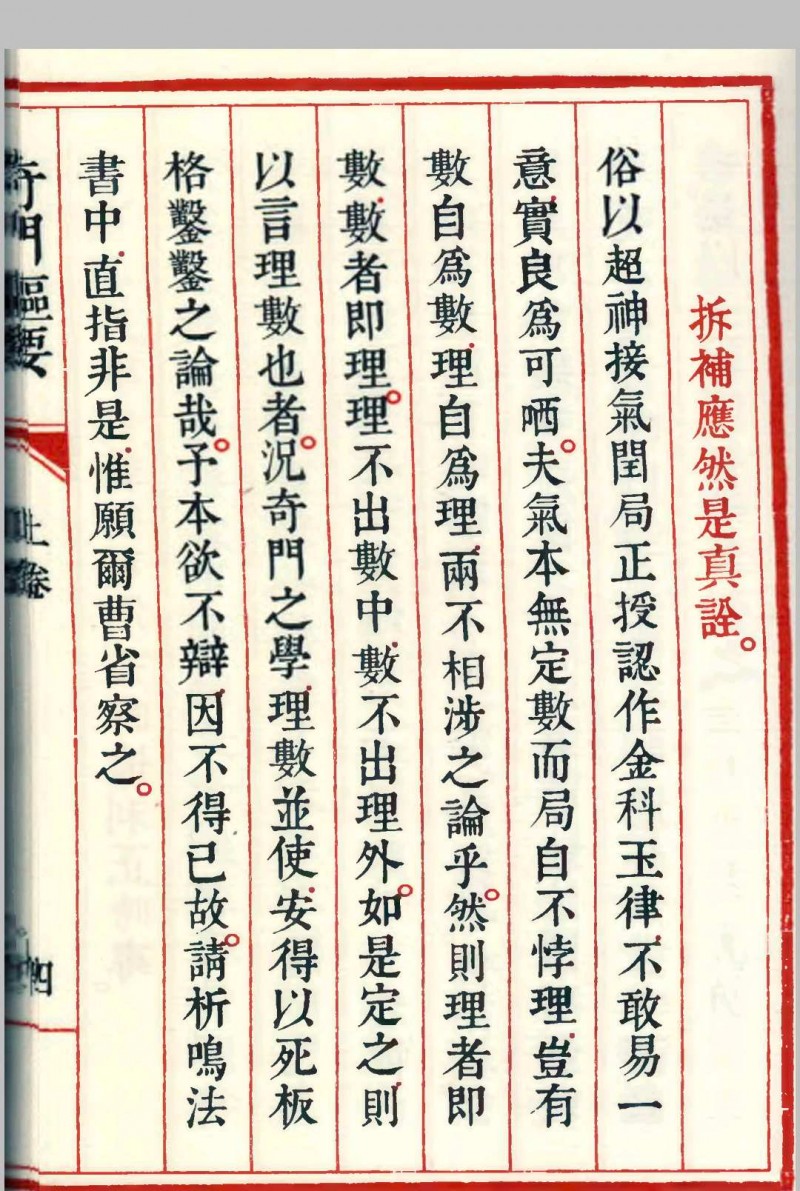 拆補應然是真詮。
俗以超神接氣閏局正授認作金科玉律.不敢易一
意.實良爲可哂。夫氣本無定數而局自不悖理.豈有
數自爲數.理自爲理.兩不相涉之論乎。然則理者即
數.數者即理。理不出數中.數不出理外。如是定之.則
以言理數也者。況奇門之學.理數並使.安得以死板
格鑿鑿之論哉。予本欲不辯.因不得已故。請析鳴法
書中.直指非是.惟願爾曹省察之。
奇門樞要
上卷
四